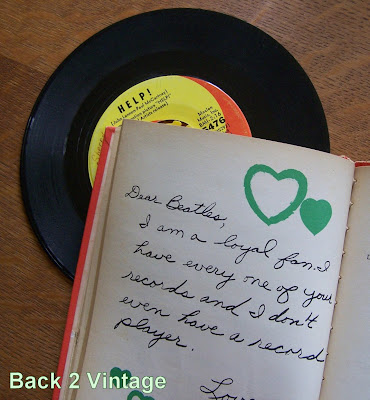 HELP!
(John Lennon-Paul McCartney)
5476
Dear Beatles,
I am a loyal fan. I
have every one of your
records and I don't
even have a record
player.
Love
Back 2 Vintage